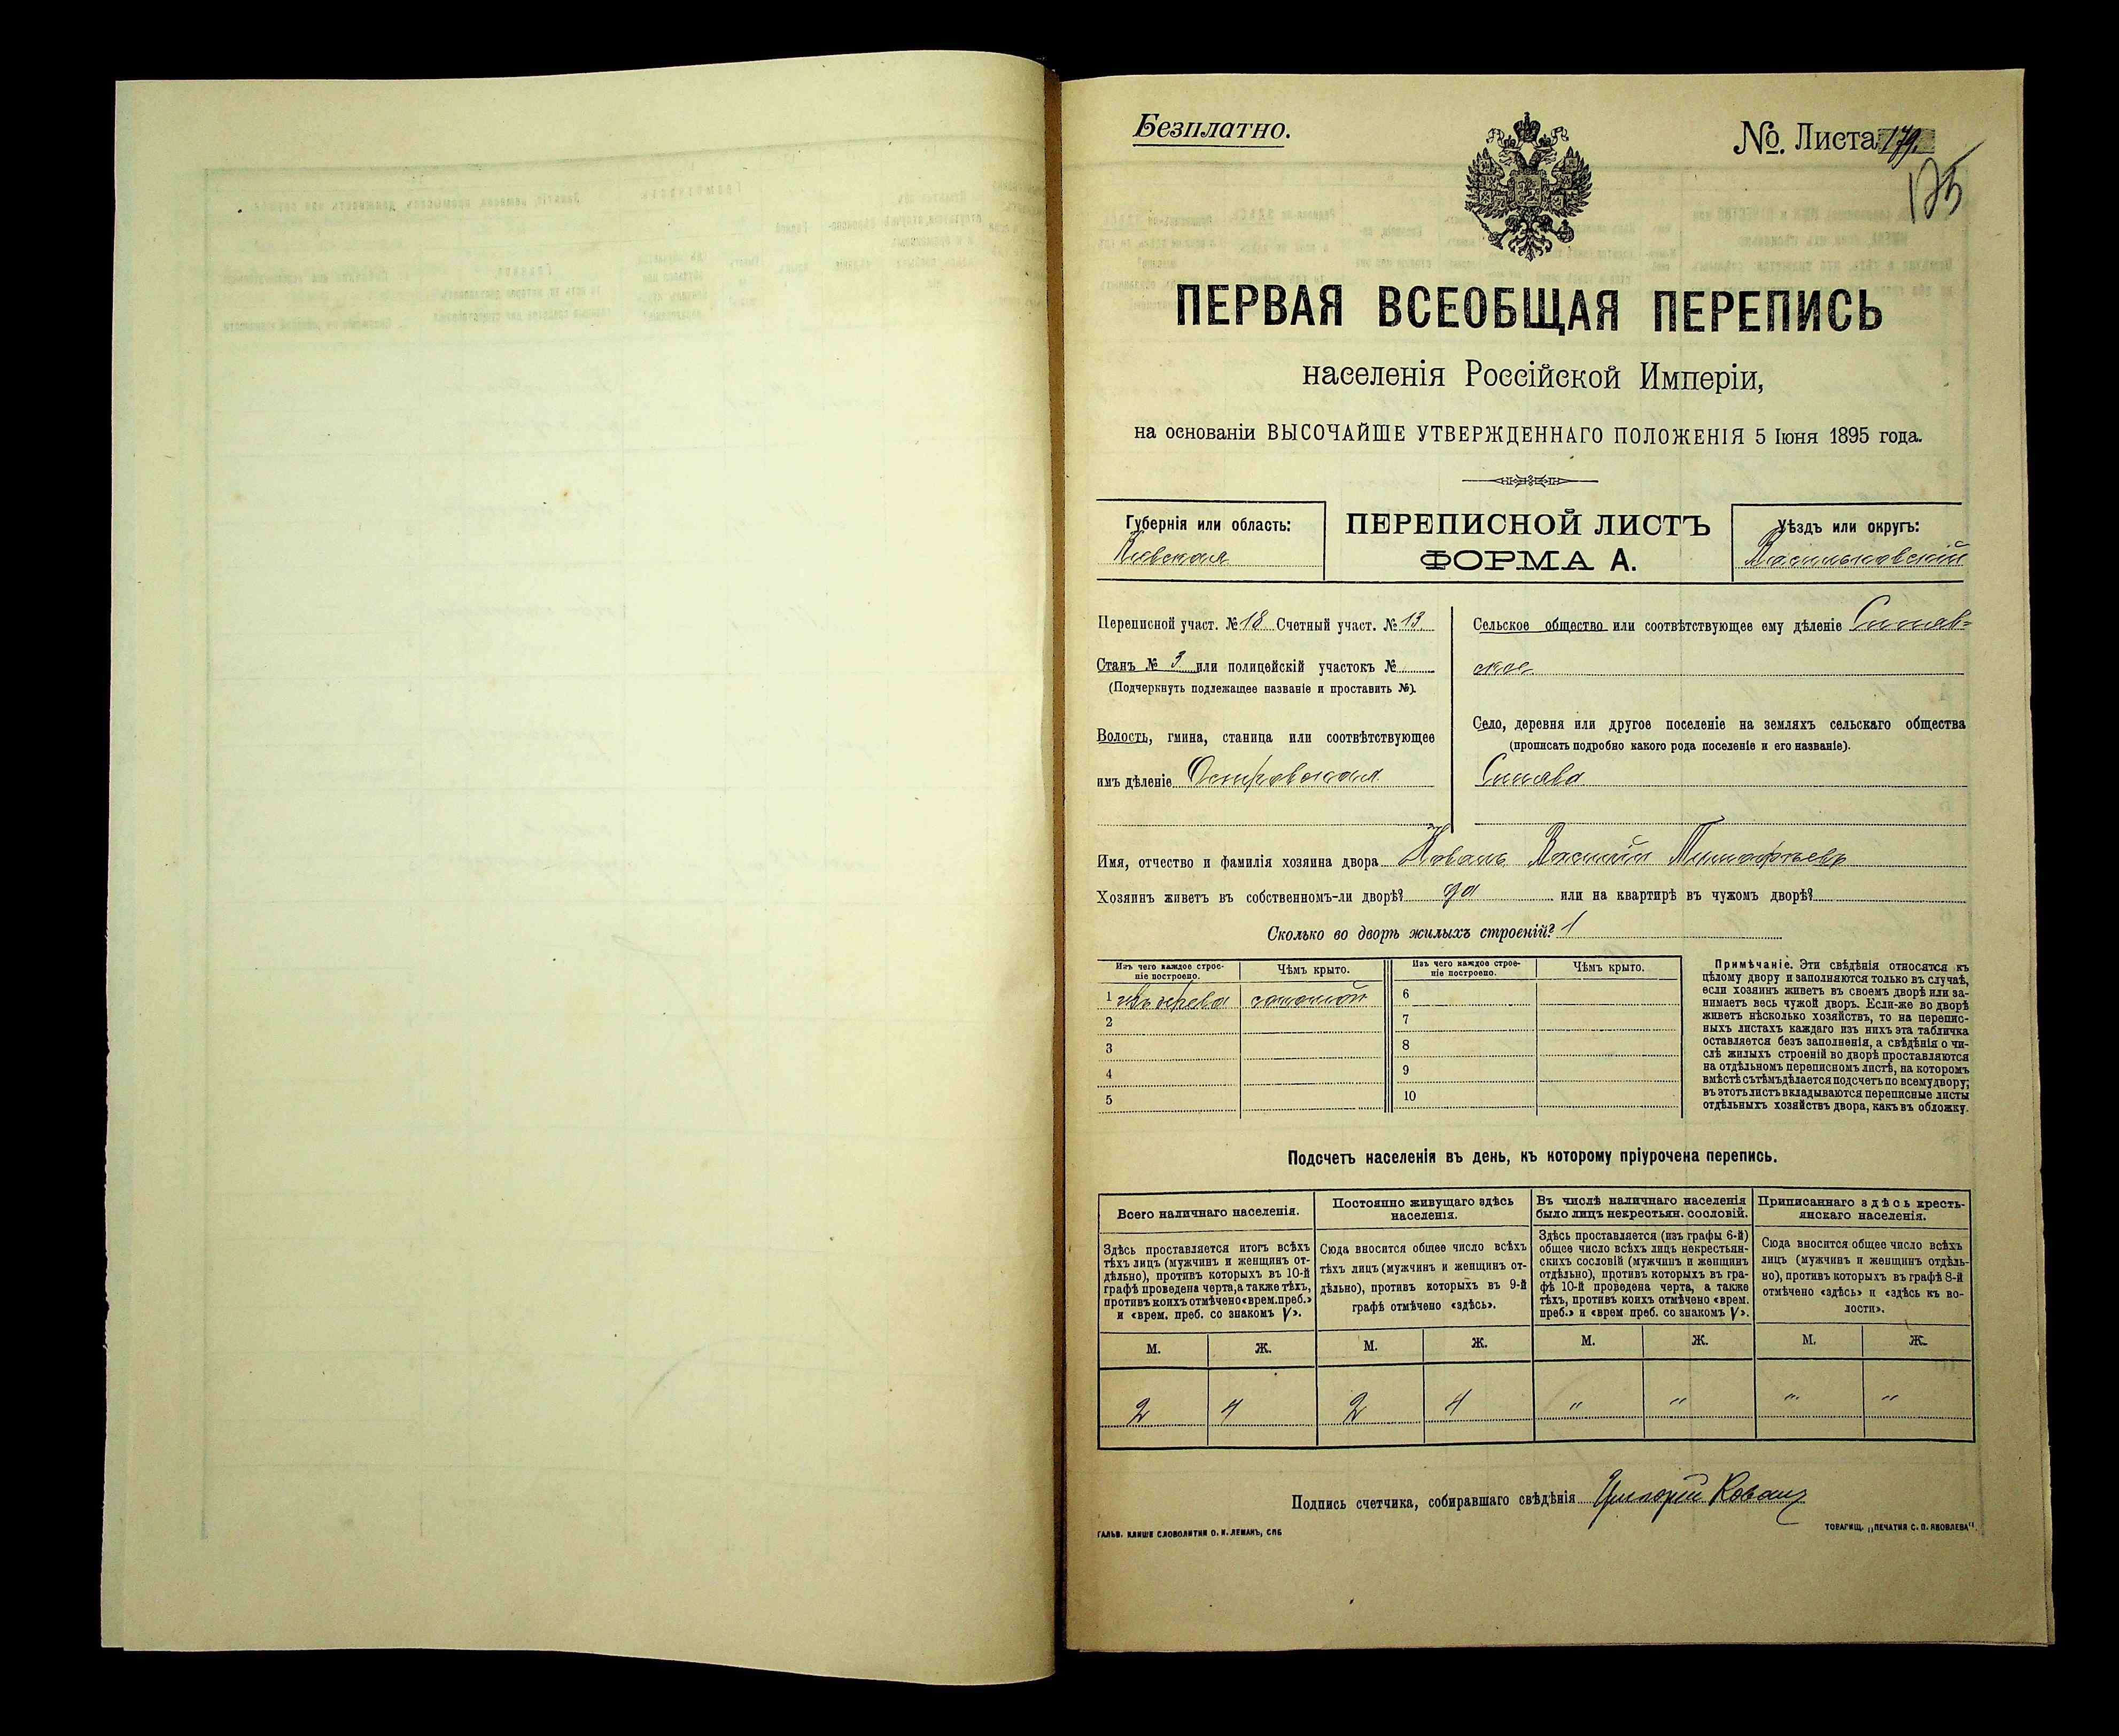 Безплатно.
№ Листа 179.
175
ПЕРВАЯ ВСЕОБЩАЯ ПЕРЕПИСЬ
населенія Россійской Имперіи,
на основаніи ВЫСОЧАЙШЕ УТВЕРЖДЕННАГО ПОЛОЖЕНІЯ 5 Іюня 1895 года.
Губернія или область:
Кіевская
ПЕРЕПИСНОЙ ЛИСТЪ
ФОРМА А.
Уѣздъ или округъ:
Васильковскій
Переписной участ. № 18 Счетный участ. № 13
Станъ № 3 или полицейскій участокъ №
(Подчеркнуть подлежащее названіе и проставить №).
Волость, гмина, станица или соотвѣтствующее
имъ дѣленіе Островская
Сельское общество или соотвѣтствующее ему дѣленіе Синяв-
ское
Село, деревня или другое поселеніе на земляхъ сельскаго общества
(прописать подробно какого рода поселеніе и его названіе).
Синява
Имя, отчество и фамилія хозяина двора Коваль Василій Тимофѣевъ
Хозяинъ живетъ въ собственномъ-ли дворѣ? да или на квартирѣ въ чужомъ дворѣ?
Сколько во дворѣ жилыхъ строеній? 1
Изъ чего каждое строе-
ніе построено.
Чѣмъ крыто.
Изъ чего каждое строе-
ніе построено.
Чѣмъ крыто.
1 изъ древа соломой 6
2 7
3 8
4 9
5 10
Примѣчаніе. Эти свѣдѣнія относятся къ
цѣлому двору и заполняются только въ случаѣ,
если хозяинъ живетъ въ своемъ дворѣ или за-
нимаетъ весь чужой дворъ. Если-же во дворѣ
живетъ нѣсколько хозяйствъ, то на перепис-
ныхъ листахъ каждаго изъ нихъ эта табличка
оставляется безъ заполненія, а свѣдѣнія о чи-
слѣ жилыхъ строеній во дворѣ проставляются
на отдѣльномъ переписномъ листѣ, на которомъ
вмѣстѣ съ тѣмъ дѣлается подсчетъ по всему двору;
въ этотъ листъ вкладываются переписные листы
отдѣльныхъ хозяйствъ двора, какъ въ обложку.
Подсчетъ населенія въ день, къ которому пріурочена перепись.
Всего наличнаго населенія.
Здѣсь проставляется итогъ всѣхъ
тѣхъ лицъ (мужчинъ и женщинъ от-
дѣльно), противъ которыхъ въ 10-й
графѣ проведена черта, а также тѣхъ,
противъ коихъ отмѣчено «врем. преб.»
и «врем. преб. со знакомъ V».
Постоянно живущаго здѣсь
населенія.
Сюда вносится общее число всѣхъ
тѣхъ лицъ (мужчинъ и женщинъ от-
дѣльно), противъ которыхъ въ 9-й
графѣ отмѣчено «здѣсь».
Въ числѣ наличнаго населенія
было лицъ некрестьян. сословій.
Здѣсь проставляется (изъ графы 6-й)
общее число всѣхъ лицъ некрестьян-
скихъ сословій (мужчинъ и женщинъ
отдѣльно), противъ которыхъ въ гра-
фѣ 10-й проведена черта, а также
тѣхъ, противъ коихъ отмѣчено «врем.
преб.» и «врем преб. со знакомъ V».
Приписаннаго здѣсь кресть-
янскаго населенія.
Сюда вносится общее число всѣхъ
лицъ (мужчинъ и женщинъ отдѣль-
но), противъ которыхъ въ графѣ 8-й
отмѣчено «здѣсь» и «здѣсь къ во-
лости».
М. Ж. М. Ж. М. Ж. М. Ж.
2 4 2 4 " " " "
Подпись счетчика, собиравшаго свѣдѣнія Григорій Коваль
ГАЛЬВ. КЛИШЕ СЛОВОЛИТНИ О. И. ЛЕМАНЪ, СПБ
ТОВАРИЩ. „ПЕЧАТНЯ С. П. ЯКОВЛЕВА".